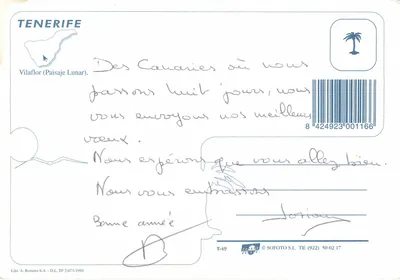 TENERIFE
Vilaflor (Paisaje Lunar).
Des Canaries où nous
passons huit jours, nous
vous envoyons nos meilleurs
vœux.
Nous espérons que vous allez bien.
Nous vous embrassons
Bonne année
8 424923 001166
T-69
© SOFOTO S.L. Tlf. (922) 50 02 17